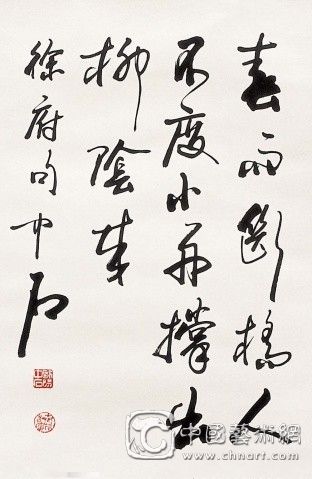 春雨斷橋人
不度小舟撐出
柳陰來
徐府句中石
中國藝術網
www.chnart.com